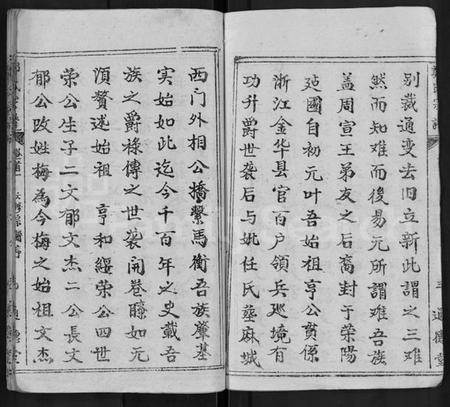 別裁通变去旧立新此謂之三难
然而知难而後易元所謂难吾族
盖周宣王弟友之后裔封于荣陽
廷國自初元叶吾始祖亨公貫係
浙江金华县官百户領兵巡境有
功升爵世袭后与妣任氏塟麻城
西门外相公橋繫馬衡吾族肇基
实始如此迄今千百年之史載吾
族之爵祿傳之世袭開卷瞭如无
湏贅述始祖亨和綏荣公四世
荣公生子二文郁文杰二公長文
郁公改姓梅為今梅之始祖文杰